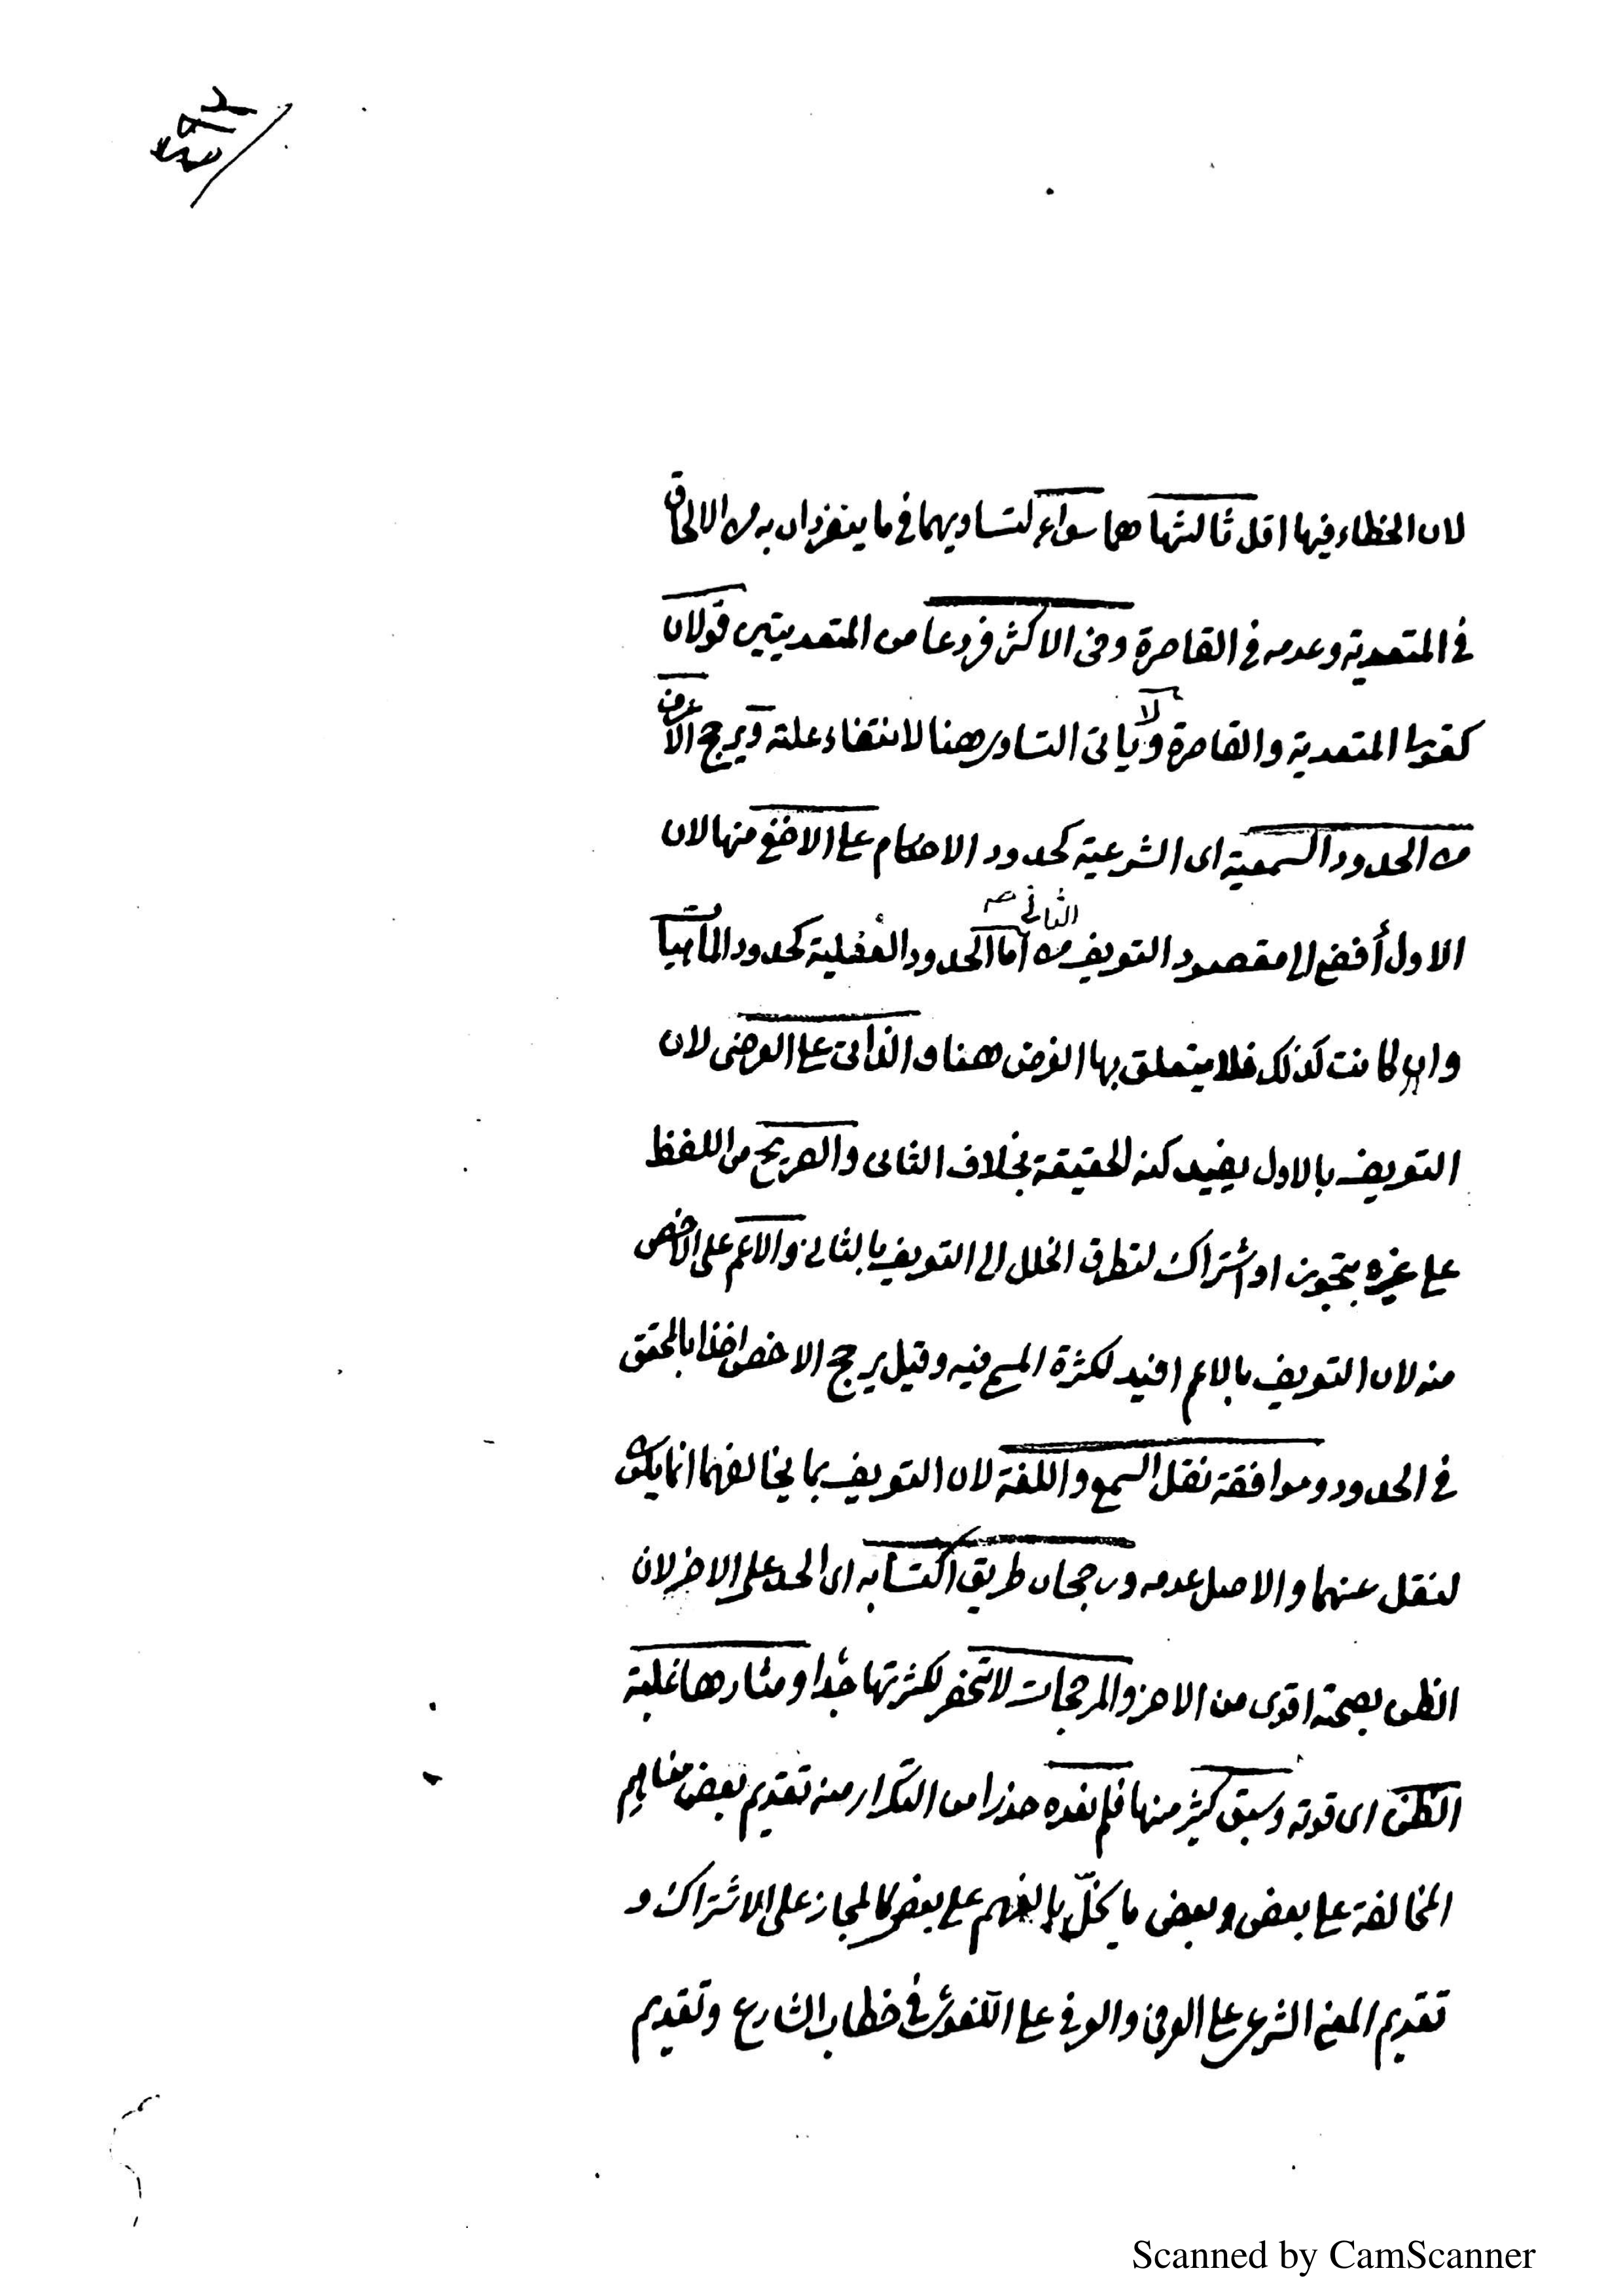 لان الخطاء فيها اقل ثالثها هما سواء لتساويهما فى ما ينفردان به من الالحاق
فى المتعدية وعدمه فى القاصرة وفى الاكثر فروعا من المتعديتين قولان
كقولى المتعدية والقاصرة ولا يأتى التساوى هنا لانتفاء علته ويرجح الاعرف
من الحدود السمعية اى الشرعية كحدود الاحكام على الاخفى منها لان
الاول أفضى الى مقصود التعريف من الثانى صح اما الحدود العقلية كحدود الماهيات
وان كانت كذلك فلا يتعلق بها الغرض هنا والذاتى على العرضى لان
التعريف بالاول يفيد كنه الحقيقة بخلاف الثانى والصريح من اللفظ
على غيره بتجوز او اشتراك لتطرق الخلل الى التعريف بالثانى والاعم على الاخص
منه لان التعريف بالاعم افيد لكثرة المسمى فيه وقيل يرجح الاخص اخذا بالمحقق
فى الحدود وموافقة نقل السمع واللغة لان التعريف بما يخالفهما انما يكون
لنقل عنهما والاصل عدمه ورجحان طريق اكتسابه اى الحد على الاخر لان
الظن بصحته اقوى من الاخر والمرجحات لا تنحصر لكثرتها جدا ومثارها غلبة
الظن اى قوته وسبق كثير منها فلم نعده حذرا من التكرار منه تقديم بعض مفاهيم
المخالفة على بعض وبعض ما يخلّ بالفهم على بعض كالمجاز على الاشتراك و
تقديم المعنى الشرعى على العرفى والعرفى على اللغوى فى خطاب الشارع وتقديم
Scanned by CamScanner